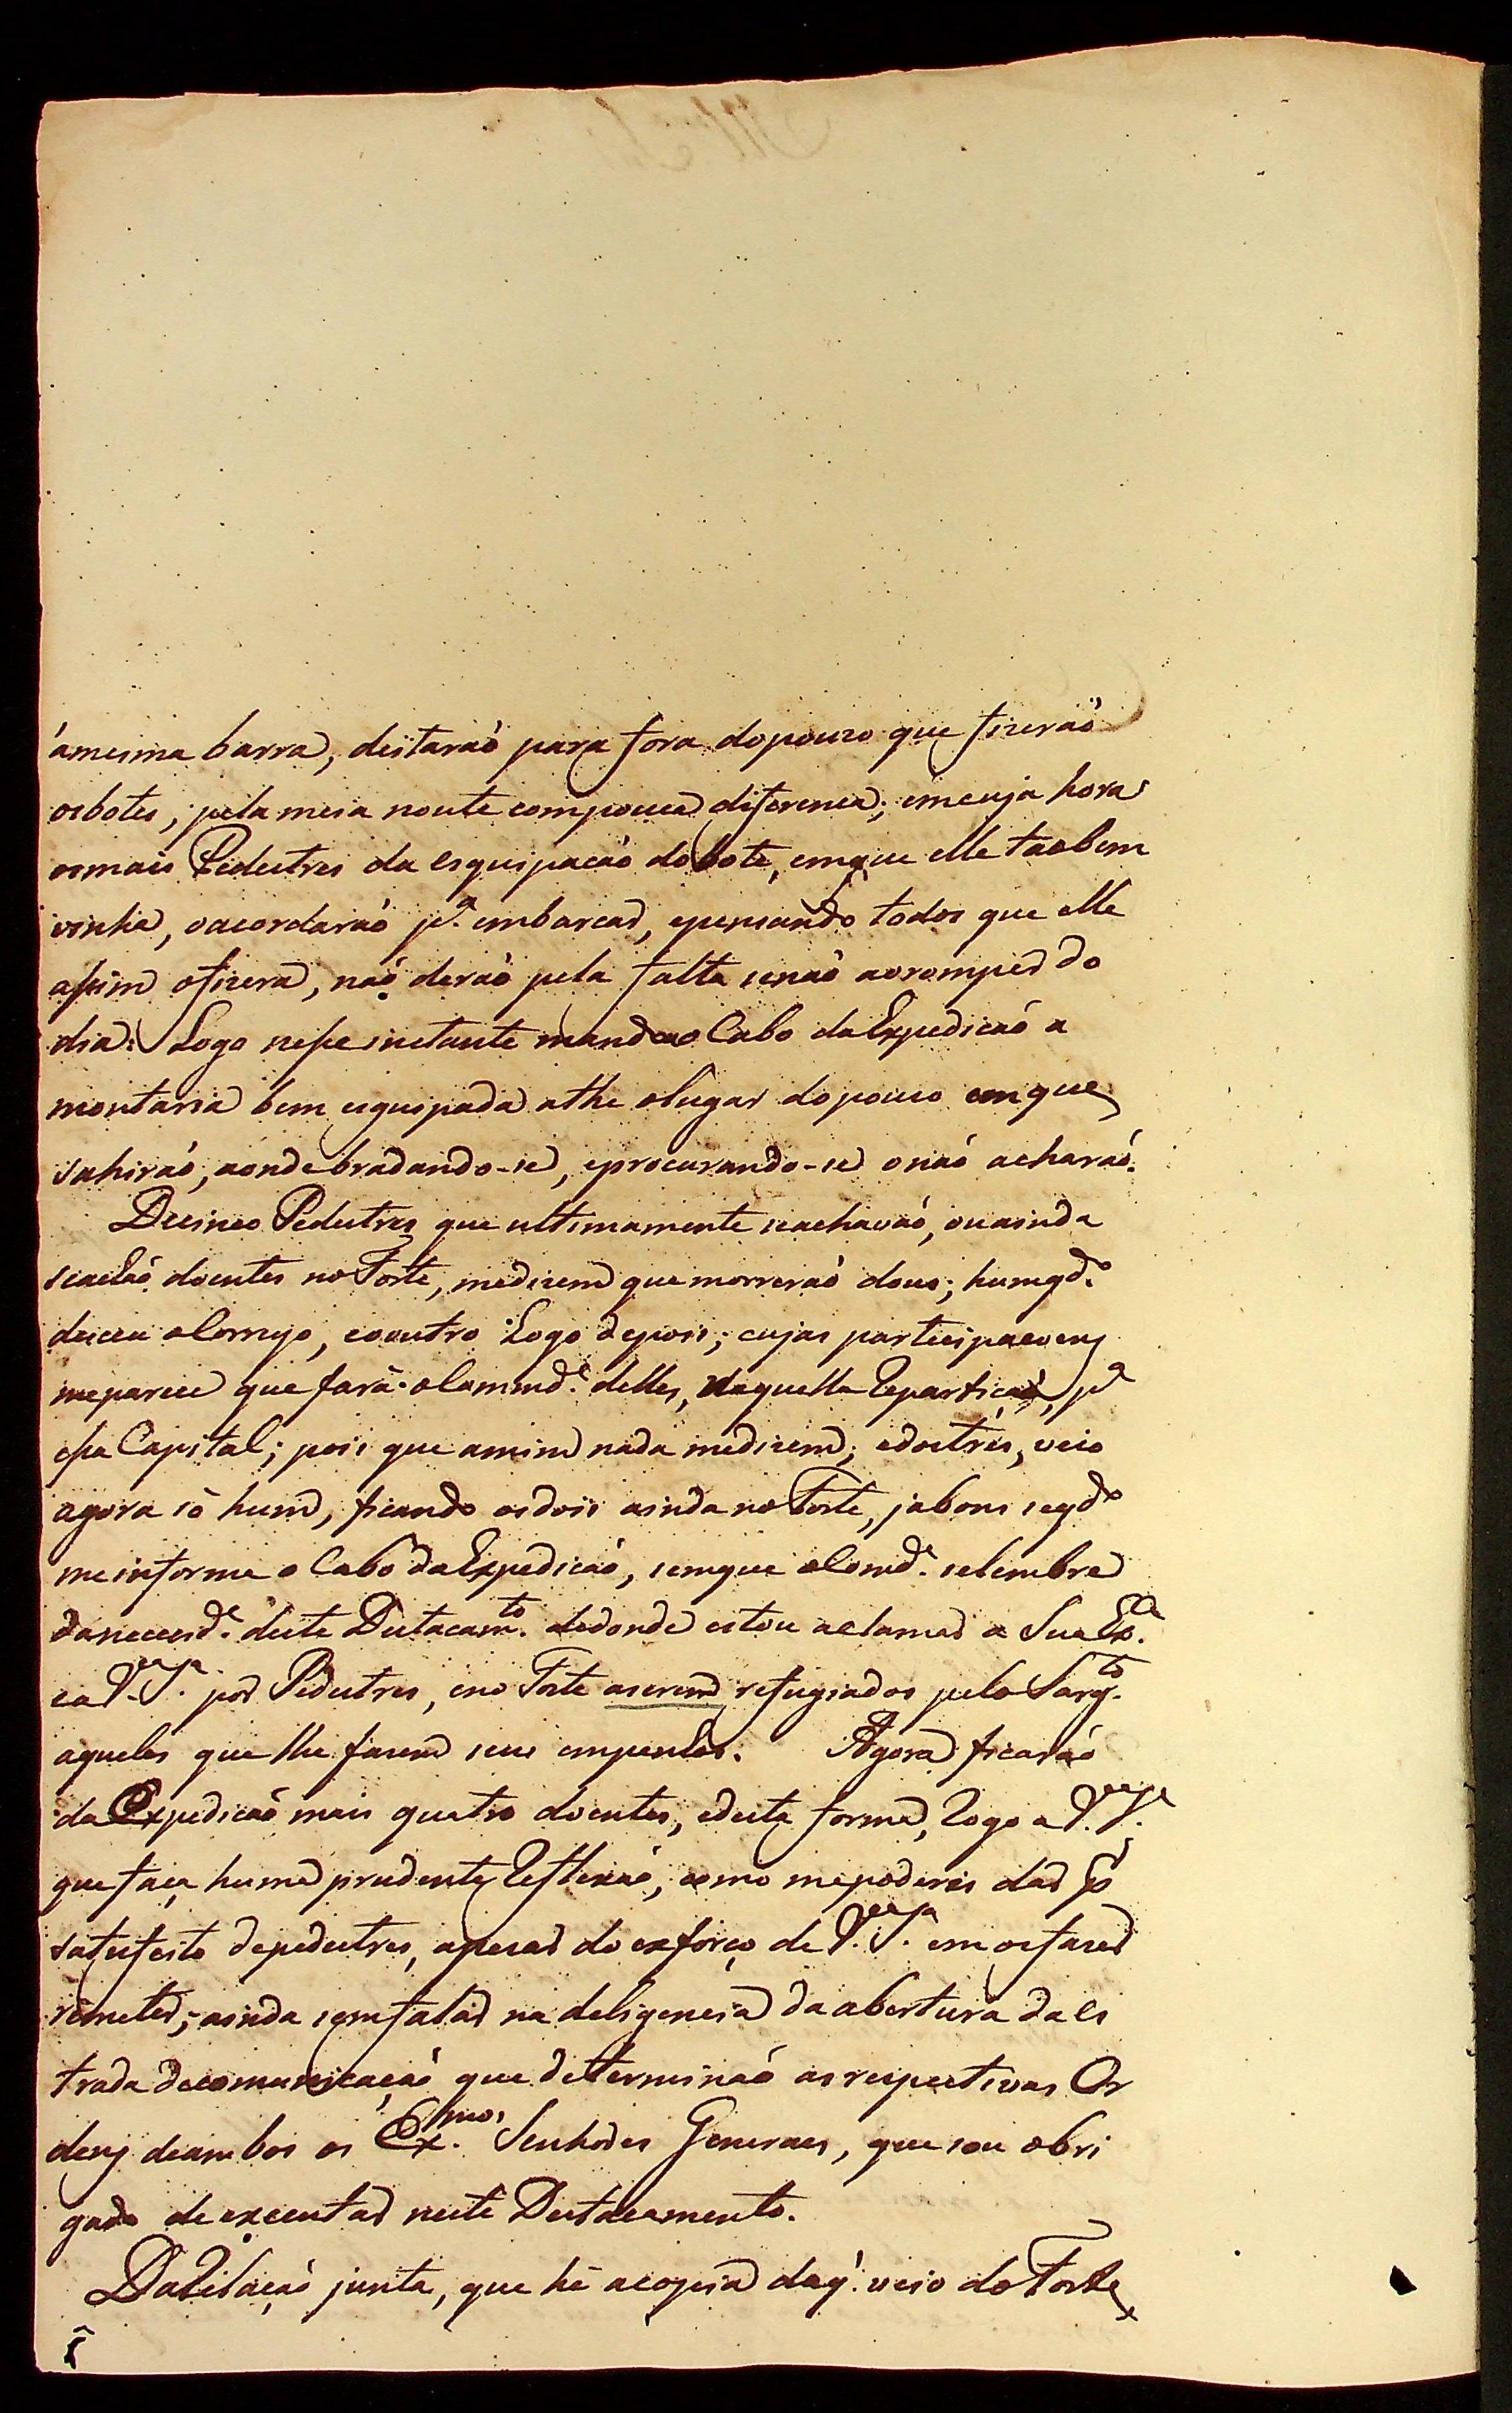 ámesma barra, deitaraõ para fora dopouzo que fizeraõ
osbotes, pela meia noute compouca diferenca; emcuja hora
osmais Pedestres da esquipacaõ dobote, emque elle taobem
vinha, oacordaraõ p.ᵃ embarcar, epensando todos que elle
assim ofizera, naõ deraõ pela falta senaõ aoromper do
dia: Logo nesse instante mandou o Cabo daExpedicaõ a
montaria bem esquipada athe olugar dopouzo emque
sahiraõ, aondebradando-se, eprocurando-se onaõ acharaõ.
Decinco Pedestres que ultimamente seachavaõ, ouainda
seachaõ doentes noForte, medizem que morreraõ dous; humqd.º
deceu oComyo, eooutro Logo depois; cujas participacoens
meparece que fará oCommd.ᵉ delles, daquella Reparticaõ, p.ᵃ
essa Capital; pois que amim nada medizem; edostrés, veio
agora só hum, ficando osdois ainda noForte, jabons segd.º
meinforma o Cabo daExpedicaõ, semque oComd.ᵉ selembre
danecesd.ᵉ deste Destacam.ᵗᵒ dedonde estou aclamar a Sua Ex.ᶜⁱᵃ
ea V.S.ᵃ por Pedestres, eno Forte aserem refugiados pelo Sarg.ᵗᵒ
aqueles que lhe fazem seus empenhos. Agora ficaraõ
da Expedicaõ mais quatro doentes, edesta forma, Rogo a V.S.ᵃ
quefaça huma prudente Reflexaõ, como mepoderei dar p.ʳ
satisfeito depedestres, apezar do exforço de V.S.ᵃ em osfazer
remeter; ainda semfalar na deligencia daabertura daes
trada decomunicaçaõ que determinaõ asrespectivas Or
dens deambos os Ex.ᵐᵒˢ Senhores Generaes, que sou obri
gado de executar neste Destacamento.
DaRelaçaõ junta, que hé acopia daq.̃ veio do Forte